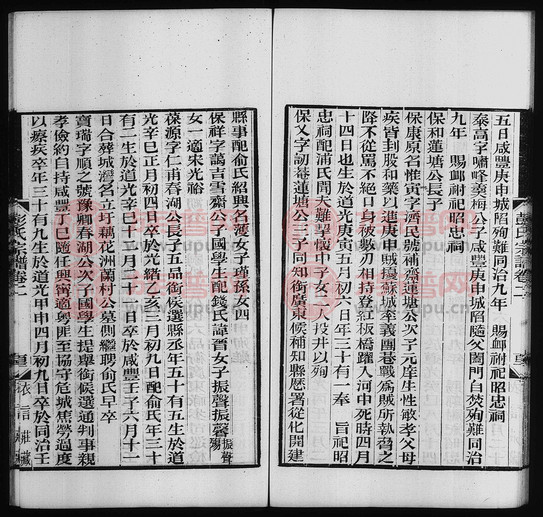 五日咸豐庚申城陷殉難同治九年　賜卹祔祀昭忠祠
泰高字嘯峰奐梅公子咸豐庚申城陷隨父闔門自焚殉難同治
九年　賜卹祔祀昭忠祠
保和蓮塘公長子
保康原名惟寅字濟民號補齋蓮塘公次子元庠生性敏孝父母
疾皆刲股和藥以進庚申賊擾蘇城奉義團巷戰為賊所執脅之
降不從罵不絕口身被數刃相持登紅板橋躍入河中死時四月
十四日也生於道光庚寅五月初六日年三十有一奉　旨祀昭
忠祠配浦氏聞夫難挈懷中子女二人投井以殉
保乂字訒菴蓮塘公三子同知銜廣東候補知縣歷署從化開建
縣事配俞氏紹興名獲女子瑾孫女四
保祥字謁吉雪齋公子國學生配錢氏諱晉女子振聲振聲殤
女一適宋光裕
葆源字仁甫春湖公長子五品銜候選縣丞年五十有五生於道
光辛巳正月初四日卒於光緒乙亥三月初九日配俞氏年三十
有二生於道光辛巳十二月二十二日卒於咸豐壬子六月十二
日合葬城灣名立圩藕花洲蘭村公墓側繼聘俞氏早卒
寶瑞字順之號豫卿春湖公次子國學生提舉銜候選通判事親
孝儉約自持咸豐丁巳隨任興甯適粵匪至協守危城焦勞過度
以瘵疾卒年三十有九生於道光甲申四月初九日卒於同治壬
彭氏宗譜卷二
衣言莊藏